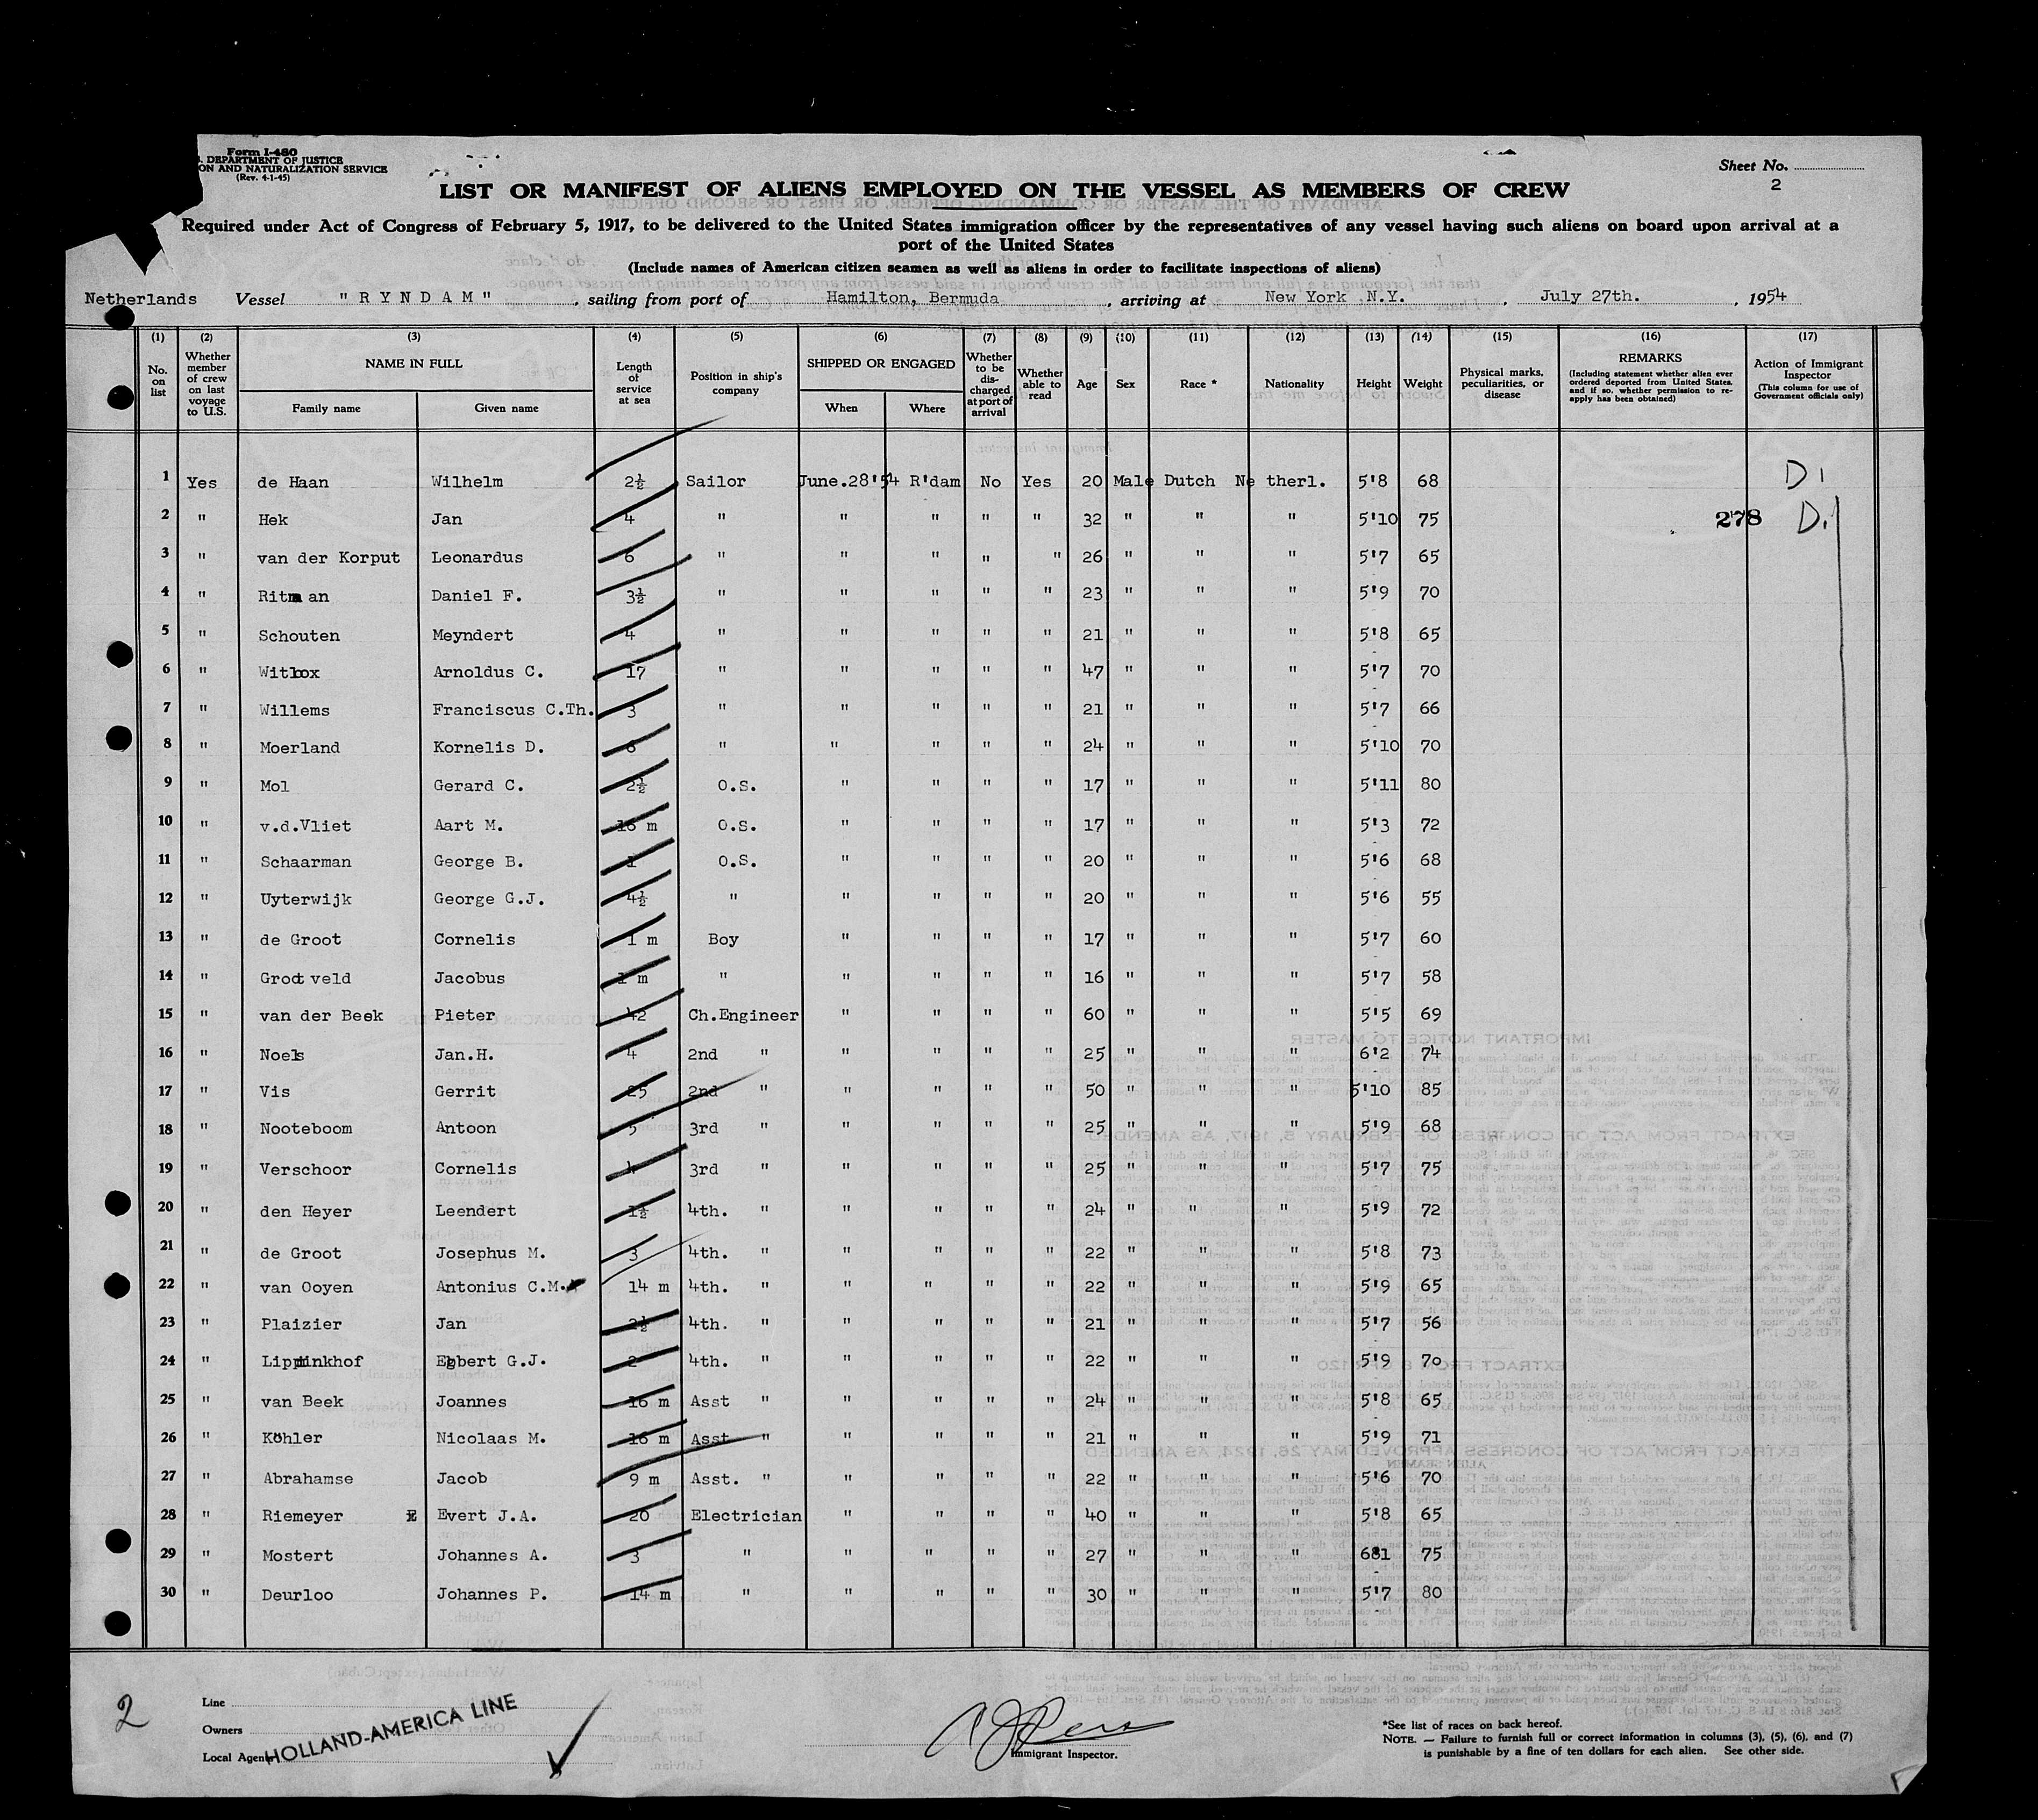 Form I-480
. DEPARTMENT OF JUSTICE
ON AND NATURALIZATION SERVICE
(Rev. 4-1-45)
Sheet No.
2
LIST OR MANIFEST OF ALIENS EMPLOYED ON THE VESSEL AS MEMBERS OF CREW
Required under Act of Congress of February 5, 1917, to be delivered to the United States immigration officer by the representatives of any vessel having such aliens on board upon arrival at a
port of the United States
(Include names of American citizen seamen as well as aliens in order to facilitate inspections of aliens)
Netherlands Vessel "RYNDAM" , sailing from port of Hamilton, Bermuda , arriving at New York N.Y. , July 27th. , 1954
(1) (2) (3) (4) (5) (6) (7) (8) (9) (10) (11) (12) (13) (14) (15) (16) (17)
No. on list
Whether member of crew on last voyage to U.S.
NAME IN FULL
Family name Given name
Length of service at sea
Position in ship's company
SHIPPED OR ENGAGED
When Where
Whether to be dis-charged at port of arrival
Whether able to read
Age
Sex
Race *
Nationality
Height
Weight
Physical marks, peculiarities, or disease
REMARKS
(Including statement whether alien ever ordered deported from United States, and if so, whether permission to re-apply has been obtained)
Action of Immigrant Inspector
(This column for use of Government officials only)
1 Yes de Haan Wilhelm 2½ Sailor June.28'54 R'dam No Yes 20 Male Dutch Ne therl. 5'8 68 D1
2 " Hek Jan 4 " " " " " 32 " " " 5'10 75 278 D.1
3 " van der Korput Leonardus 6 " " " " " 26 " " " 5'7 65
4 " Ritman Daniel F. 3½ " " " " " 23 " " " 5'9 70
5 " Schouten Meyndert 4 " " " " " 21 " " " 5'8 65
6 " Witbox Arnoldus C. 17 " " " " " 47 " " " 5'7 70
7 " Willems Franciscus C.Th. 3 " " " " " 21 " " " 5'7 66
8 " Moerland Kornelis D. 6 " " " " " 24 " " " 5'10 70
9 " Mol Gerard C. 2½ O.S. " " " " 17 " " " 5'11 80
10 " v.d.Vliet Aart M. 16 m O.S. " " " " 17 " " " 5'3 72
11 " Schaarman George B. 1 O.S. " " " " 20 " " " 5'6 68
12 " Uyterwijk George G.J. 4½ " " " " " 20 " " " 5'6 55
13 " de Groot Cornelis 1 m Boy " " " " 17 " " " 5'7 60
14 " Grootveld Jacobus 1 m " " " " " 16 " " " 5'7 58
15 " van der Beek Pieter 42 Ch.Engineer " " " " 60 " " " 5'5 69
16 " Noels Jan.H. 4 2nd " " " " " 25 " " " 6'2 74
17 " Vis Gerrit 25 2nd " " " " " 50 " " " 5'10 85
18 " Nooteboom Antoon 5 3rd " " " " " 25 " " " 5'9 68
19 " Verschoor Cornelis 4 3rd " " " " " 25 " " " 5'7 75
20 " den Heyer Leendert 1½ 4th. " " " " " 24 " " " 5'9 72
21 " de Groot Josephus M. 3 4th. " " " " " 22 " " " 5'8 73
22 " van Ooyen Antonius C.M. 14 m 4th. " " " " " 22 " " " 5'9 65
23 " Plaizier Jan 2½ 4th. " " " " " 21 " " " 5'7 56
24 " Lippinkhof Egbert G.J. 2 4th. " " " " " 22 " " " 5'9 70
25 " van Beek Joannes 16 m Asst " " " " " 24 " " " 5'8 65
26 " Köhler Nicolaas M. 16 m Asst " " " " " 21 " " " 5'9 71
27 " Abrahamse Jacob 9 m Asst. " " " " " 22 " " " 5'6 70
28 " Riemeyer Evert J.A. 20 Electrician " " " " 40 " " " 5'8 65
29 " Mostert Johannes A. 3 " " " " " 27 " " " 6'1 75
30 " Deurloo Johannes P. 14 m " " " " " 30 " " " 5'7 80
2
Line
Owners
Local Agent
HOLLAND-AMERICA LINE
Immigrant Inspector.
*See list of races on back hereof.
NOTE. — Failure to furnish full or correct information in columns (3), (5), (6), and (7)
is punishable by a fine of ten dollars for each alien. See other side.